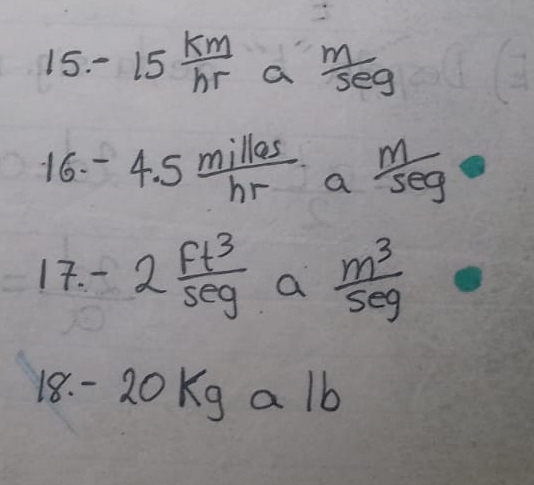 15.- 15 km/hr a m/seg
16.- 4.5 millas/hr a m/seg
17.- 2 ft³/seg a m³/seg
18.- 20 Kg a lb